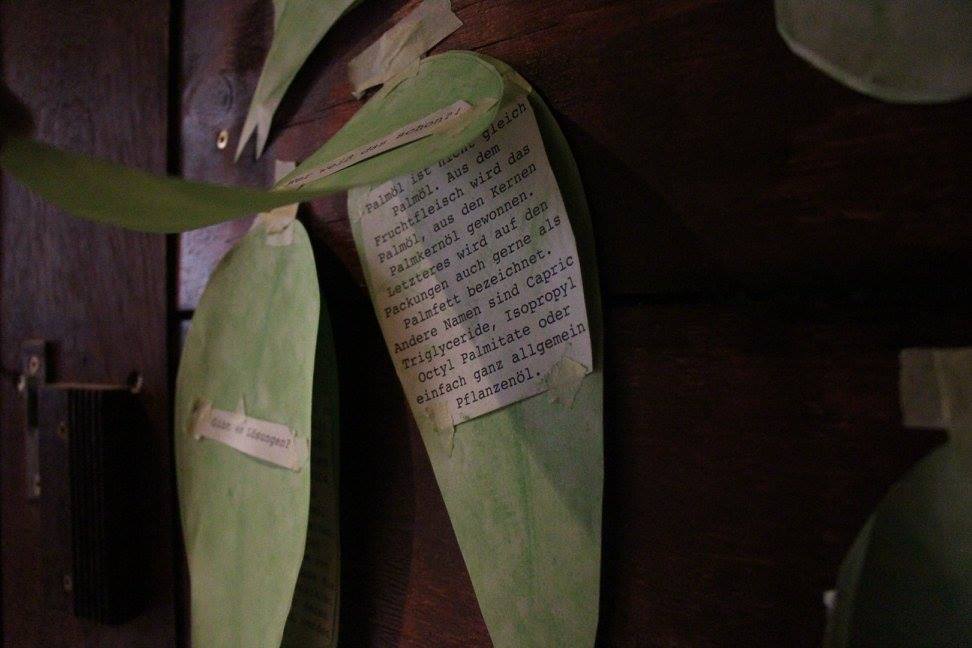 das schon?!
Palmöl ist nicht gleich
Palmöl. Aus dem
Fruchtfleisch wird das
Palmöl, aus den Kernen
Palmkernöl gewonnen.
Letzteres wird auf den
Packungen auch gerne als
Palmfett bezeichnet.
Andere Namen sind Capric
Triglyceride, Isopropyl
Octyl Palmitate oder
einfach ganz allgemein
Pflanzenöl.
Gibt es Lösungen?